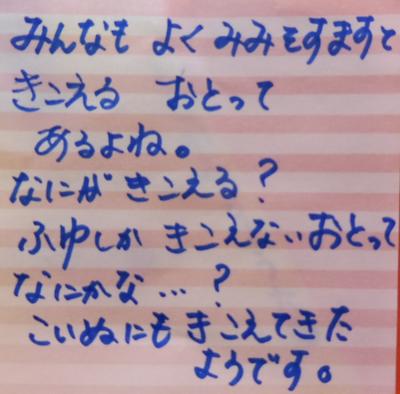 みんなも よく みみをすますと
きこえる おとって
あるよね。
なにが きこえる?
ふゆしか きこえないおとって
なにかな…?
こいぬにも きこえてきた
ようです。